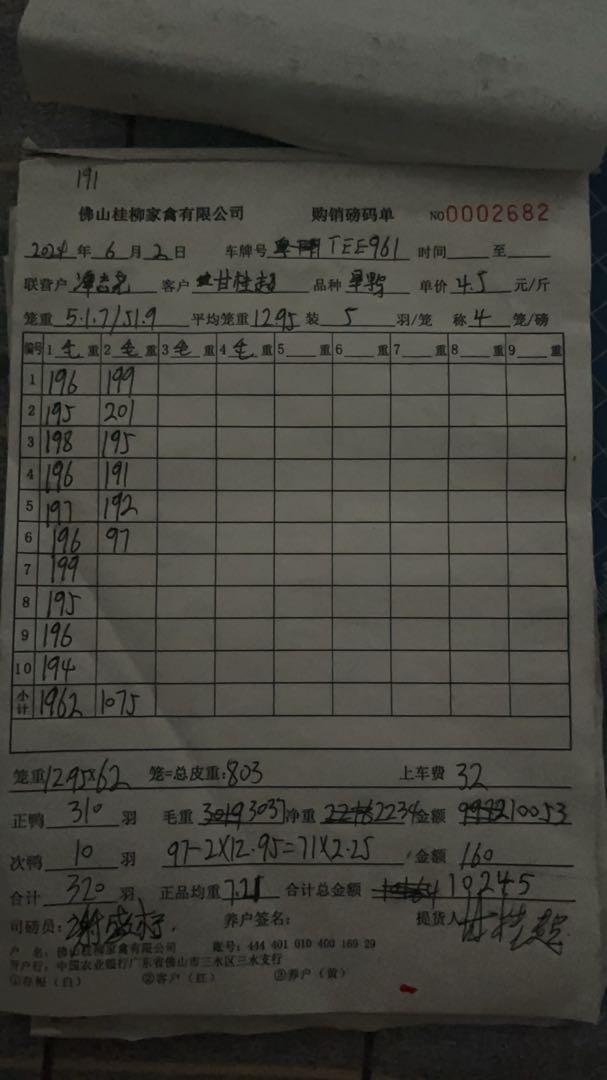 191
佛山桂柳家禽有限公司 购销磅码单 NO0002682
2024年6月2日 车牌号 TEE961 时间 至
联营户 客户 甘桂超 品种 单价 4.5 元/斤
笼重 51.7/51.9 平均笼重 12.95 装 5 羽/笼 称 4 笼/磅
编号 1 毛 重 2 毛 重 3 毛 重 4 毛 重 5 重 6 重 7 重 8 重 9 重
1 196 199
2 195 201
3 198 195
4 196 191
5 197 192
6 196 97
7 199
8 195
9 196
10 194
小计 1962 1075
笼重 12.95×62 笼=总皮重: 803 上车费 32
正鸭 310 羽 毛重 3037 净重 2234 金额 10053
次鸭 10 羽 97-2×12.95=71×2.25 金额 160
合计 320 羽 正品均重 7.21 合计总金额 10245
司磅员: 养户签名: 提货人 甘桂超
户 名: 佛山桂柳家禽有限公司 账号: 444 401 010 400 169 29
开户行: 中国农业银行广东省佛山市三水区三水支行
①存根(白) ②客户(红) ③养户(黄)